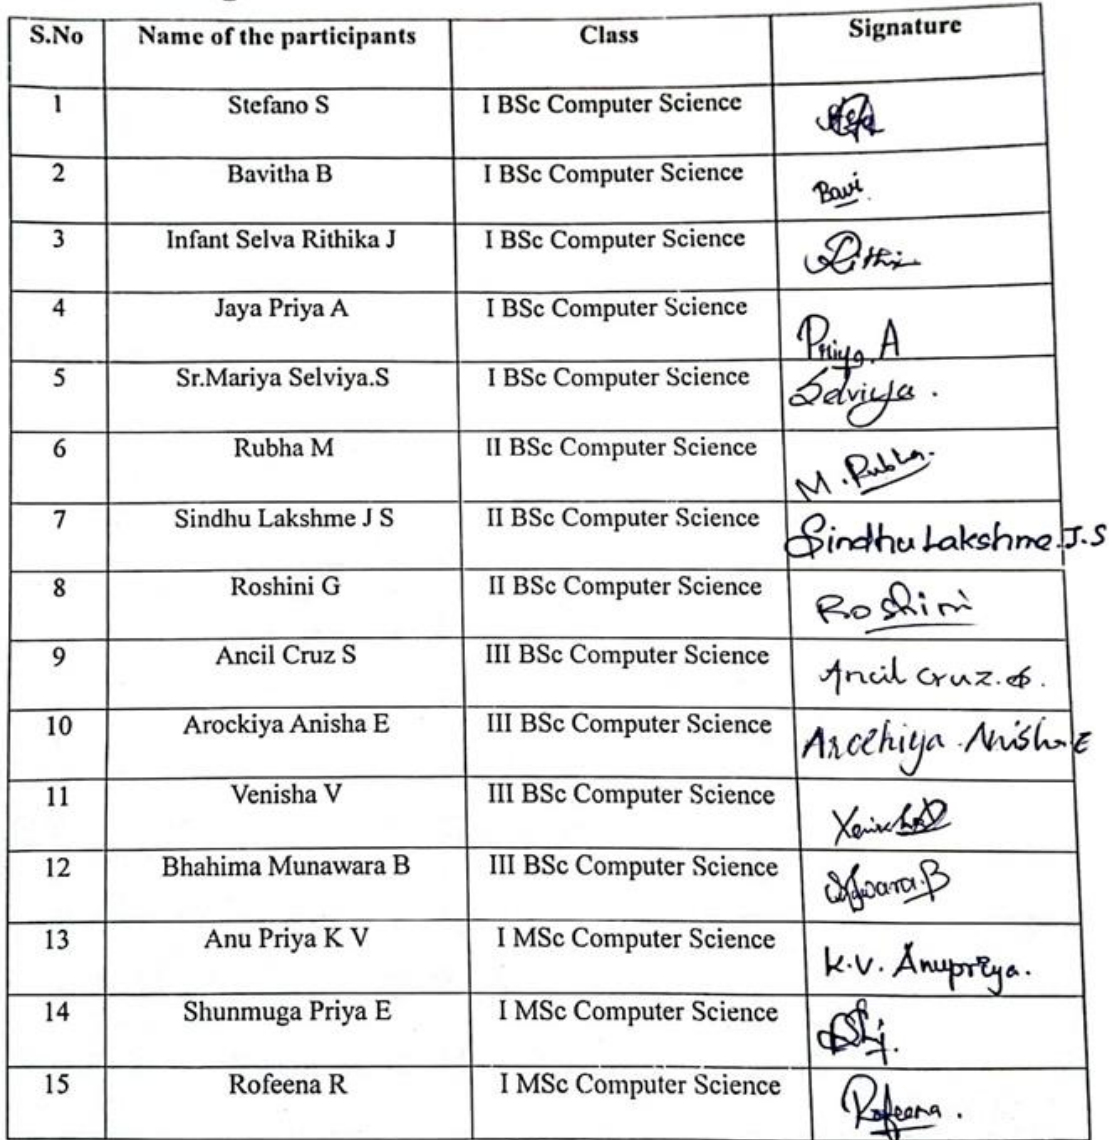 S.No Name of the participants Class Signature
1 Stefano S I BSc Computer Science
2 Bavitha B I BSc Computer Science Bavi.
3 Infant Selva Rithika J I BSc Computer Science
4 Jaya Priya A I BSc Computer Science Priya. A
5 Sr.Mariya Selviya.S I BSc Computer Science Selviya.
6 Rubha M II BSc Computer Science M. Rubha.
7 Sindhu Lakshme J S II BSc Computer Science Sindhu Lakshme J.S
8 Roshini G II BSc Computer Science Roshini
9 Ancil Cruz S III BSc Computer Science Ancil Cruz. S.
10 Arockiya Anisha E III BSc Computer Science Arockiya Anisha E
11 Venisha V III BSc Computer Science
12 Bhahima Munawara B III BSc Computer Science
13 Anu Priya K V I MSc Computer Science K.V. Anupriya.
14 Shunmuga Priya E I MSc Computer Science
15 Rofeena R I MSc Computer Science Rofeena.